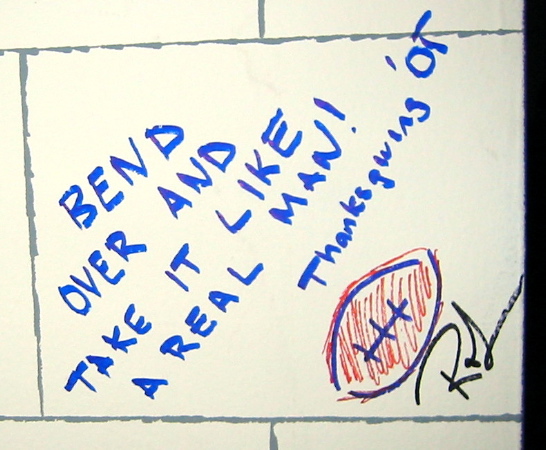 BEND
OVER AND
TAKE IT LIKE
A REAL MAN!
Thanksgiving '05